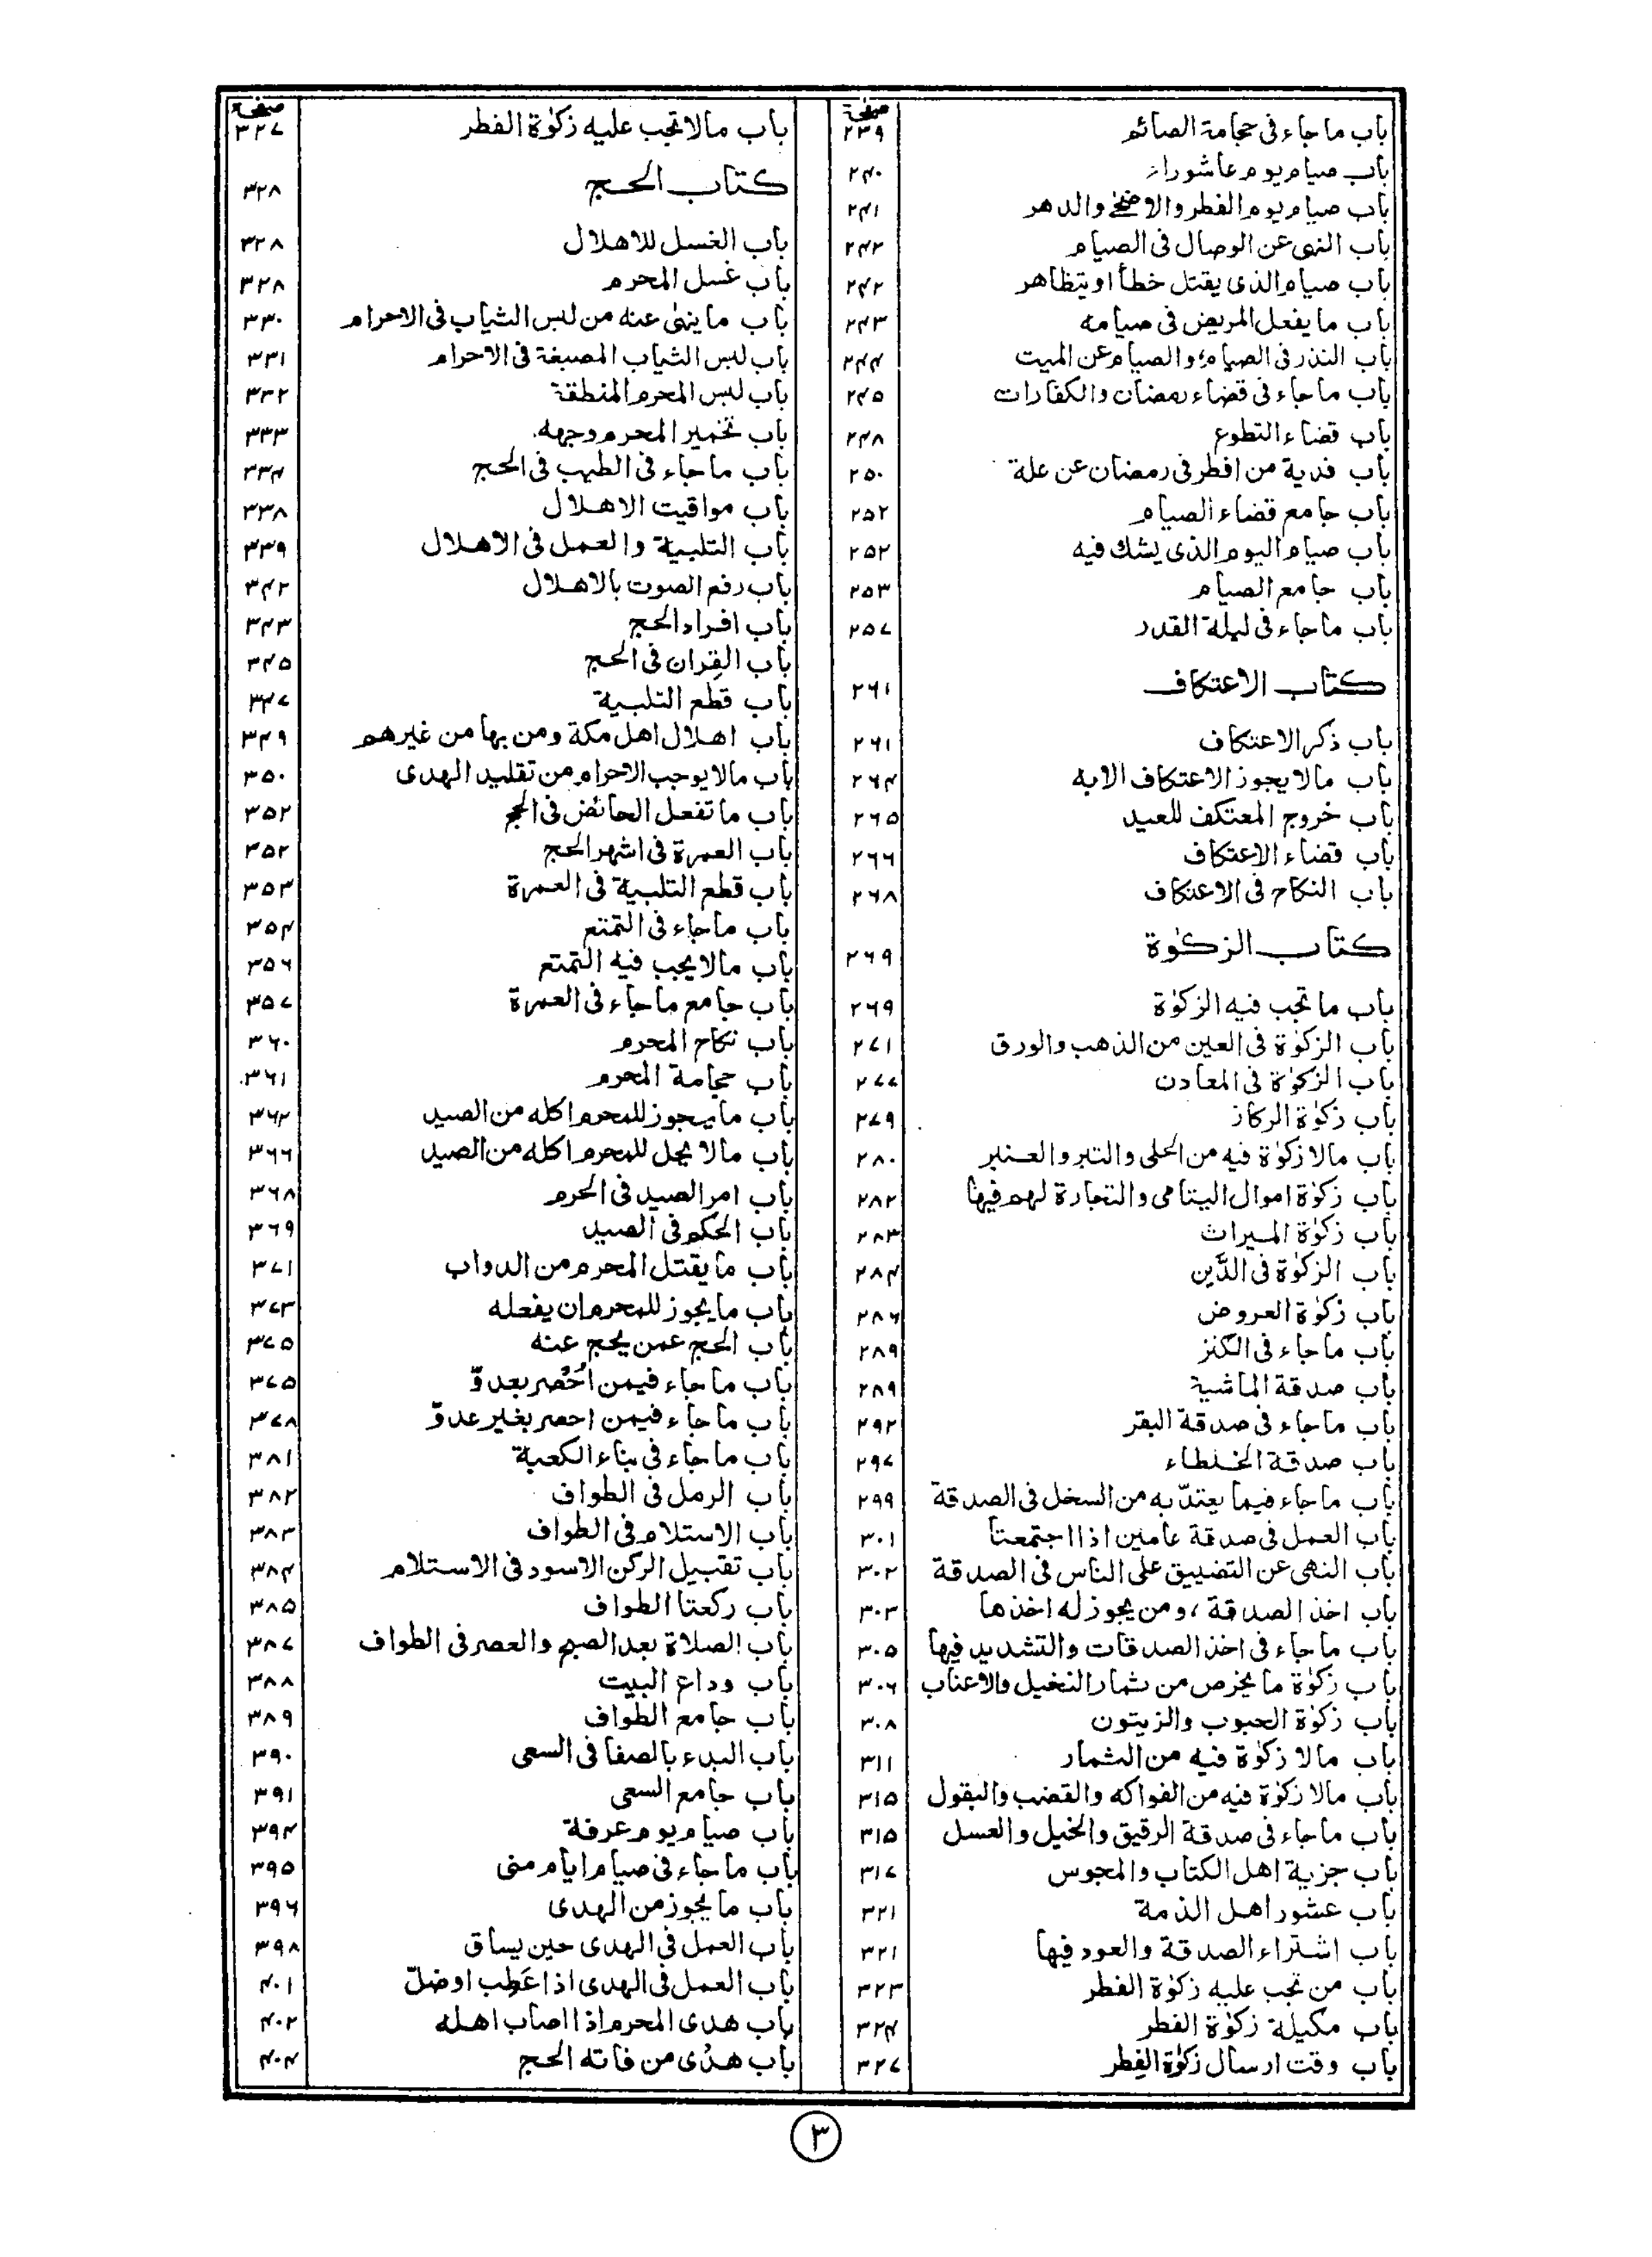 صفحة
باب ما جاء فى حجامة الصائم ٢٣٩
باب صيام يوم عاشوراء ٢٤٠
باب صيام يوم الفطر والاضحٰى والدهر ٢٤١
باب النهى عن الوصال فى الصيام ٢٤٢
باب صيام الذى يقتل خطأ او يتظاهر ٢٤٢
باب ما يفعل المريض فى صيامه ٢٤٣
باب النذر فى الصيام، والصيام عن الميت ٢٤٤
باب ما جاء فى قضاء رمضان والكفارات ٢٤٥
باب قضاء التطوع ٢٤٨
باب فدية من افطر فى رمضان عن علة ٢٥٠
باب جامع قضاء الصيام ٢٥٢
باب صيام اليوم الذى يشك فيه ٢٥٢
باب جامع الصيام ٢٥٣
باب ما جاء فى ليلة القدر ٢٥٧
كتاب الاعتكاف ٢٦١
باب ذكر الاعتكاف ٢٦١
باب مالا يجوز الاعتكاف الا به ٢٦٤
باب خروج المعتكف للعيد ٢٦٥
باب قضاء الاعتكاف ٢٦٦
باب النكاح فى الاعتكاف ٢٦٨
كتاب الزكوٰة ٢٦٩
باب ما تجب فيه الزكوٰة ٢٦٩
باب الزكوٰة فى العين من الذهب والورق ٢٧١
باب الزكوٰة فى المعادن ٢٧٧
باب زكوٰة الركاز ٢٧٩
باب مالا زكوٰة فيه من الحلى والتبر والعنبر ٢٨٠
باب زكوٰة اموال اليتامى والتجارة لهم فيها ٢٨٢
باب زكوٰة الميراث ٢٨٣
باب الزكوٰة فى الدَّين ٢٨٤
باب زكوٰة العروض ٢٨٦
باب ما جاء فى الكنز ٢٨٩
باب صدقة الماشية ٢٨٩
باب ما جاء فى صدقة البقر ٢٩٢
باب صدقة الخلطاء ٢٩٧
باب ما جاء فيما يعتدّ به من السخل فى الصدقة ٢٩٩
باب العمل فى صدقة عامين اذا اجتمعتا ٣٠١
باب النهى عن التضييق على الناس فى الصدقة ٣٠٢
باب اخذ الصدقة، ومن يجوز له اخذها ٣٠٣
باب ما جاء فى اخذ الصدقات والتشديد فيها ٣٠٥
باب زكوٰة ما يخرص من ثمار النخيل والاعناب ٣٠٦
باب زكوٰة الحبوب والزيتون ٣٠٨
باب مالا زكوٰة فيه من الثمار ٣١١
باب مالا زكوٰة فيه من الفواكه والقضب والبقول ٣١٥
باب ما جاء فى صدقة الرقيق والخيل والعسل ٣١٥
باب جزية اهل الكتاب والمجوس ٣١٧
باب عشور اهل الذمة ٣٢١
باب اشتراء الصدقة والعود فيها ٣٢١
باب من تجب عليه زكوٰة الفطر ٣٢٣
باب مكيلة زكوٰة الفطر ٣٢٤
باب وقت ارسال زكوٰة الفطر ٣٢٧
صفحة
باب مالا تجب عليه زكوٰة الفطر ٣٢٧
كتاب الحج ٣٢٨
باب الغسل للاهلال ٣٢٨
باب غسل المحرم ٣٢٨
باب ما ينهٰى عنه من لبس الثياب فى الاحرام ٣٣٠
باب لبس الثياب المصبغة فى الاحرام ٣٣١
باب لبس المحرم المنطقة ٣٣٢
باب تخمير المحرم وجهه ٣٣٣
باب ما جاء فى الطيب فى الحج ٣٣٤
باب مواقيت الاهلال ٣٣٨
باب التلبية والعمل فى الاهلال ٣٣٩
باب رفع الصوت بالاهلال ٣٤٢
باب افراد الحج ٣٤٣
باب القِران فى الحج ٣٤٥
باب قطع التلبية ٣٤٧
باب اهلال اهل مكة ومن بها من غيرهم ٣٤٩
باب مالا يوجب الاحرام من تقليد الهدى ٣٥٠
باب ما تفعل الحائض فى الحج ٣٥٢
باب العمرة فى اشهر الحج ٣٥٢
باب قطع التلبية فى العمرة ٣٥٣
باب ما جاء فى التمتع ٣٥٤
باب مالا يجب فيه التمتع ٣٥٦
باب جامع ما جاء فى العمرة ٣٥٧
باب نكاح المحرم ٣٦٠
باب حجامة المحرم ٣٦١
باب ما يجوز للمحرم اكله من الصيد ٣٦٢
باب مالا يحل للمحرم اكله من الصيد ٣٦٦
باب امر الصيد فى الحرم ٣٦٨
باب الحكم فى الصيد ٣٦٩
باب ما يقتل المحرم من الدواب ٣٧١
باب ما يجوز للمحرم ان يفعله ٣٧٣
باب الحج عمن يحج عنه ٣٧٥
باب ما جاء فيمن اُحْصر بعدوّ ٣٧٥
باب ما جاء فيمن احصر بغير عدوّ ٣٧٨
باب ما جاء فى بناء الكعبة ٣٨١
باب الرمل فى الطواف ٣٨٢
باب الاستلام فى الطواف ٣٨٣
باب تقبيل الركن الاسود فى الاستلام ٣٨٤
باب ركعتا الطواف ٣٨٥
باب الصلاة بعد الصبح والعصر فى الطواف ٣٨٧
باب وداع البيت ٣٨٨
باب جامع الطواف ٣٨٩
باب البدء بالصفا فى السعى ٣٩٠
باب جامع السعى ٣٩١
باب صيام يوم عرفة ٣٩٤
باب ما جاء فى صيام ايام منى ٣٩٥
باب ما يجوز من الهدى ٣٩٦
باب العمل فى الهدى حين يساق ٣٩٨
باب العمل فى الهدى اذا عَطِب او ضلّ ٤٠١
باب هدى المحرم اذا اصاب اهله ٤٠٢
باب هدى من فاته الحج ٤٠٤
٣